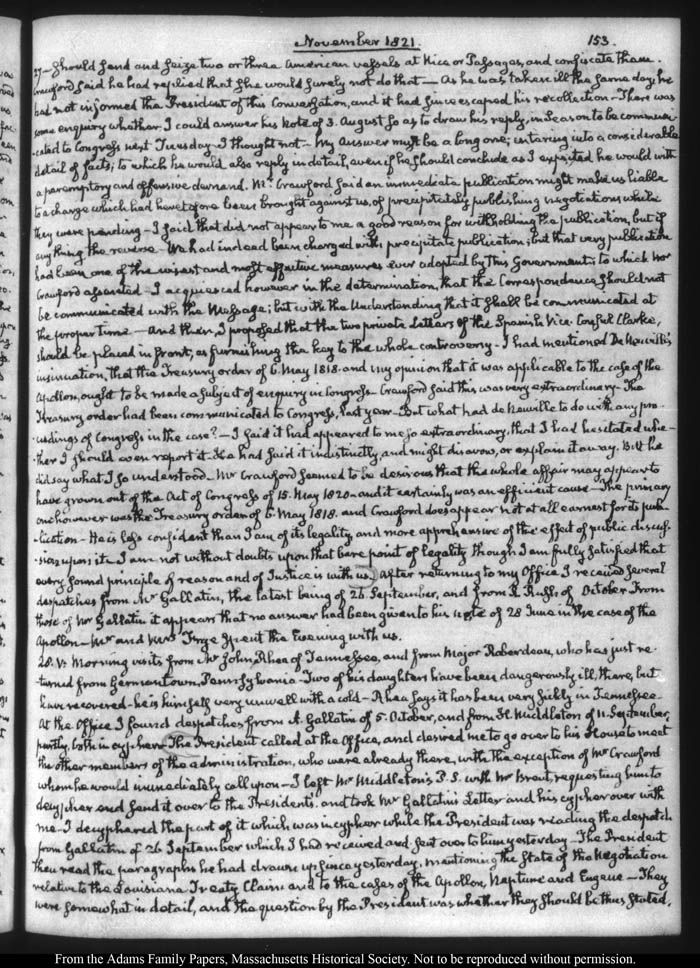 November 1821.
153.
27— Should send and seize two or three American vessels at Nice or Passages, and confiscate them.
Crawford said he had replied that she would surely not do that— As he was taken ill the same day, he
had not informed the President of this Conversation, and it had since escaped his recollection— There was
some enquiry whether I could answer his Note of 3. August so as to draw his reply, in season to be communi-
cated to Congress next Tuesday. I thought not— My Answer must be a long one; entering into a considerable
detail of facts; to which he would also reply in detail, even if he should conclude as I expected he would with
a peremptory and offensive demand. Mr. Crawford said an immediate publication might make us liable
to a charge which had heretofore been brought against us, of precipitately publishing negotiations while
they were pending— I said that did not appear to me a good reason for withholding the publication, but if
any thing the reverse— We had indeed been charged with precipitate publication; but that very publication
had been one of the wisest and most effective measures ever adopted by this Government; to which Mr
Crawford assented— I acquiesced however in the determination, that the Correspondence should not
be communicated with the Message; but with the Understanding that it shall be communicated at
the proper time— And then, I proposed that the two private Letters of the Spanish Vice-Consul Clarke,
should be placed in front, as furnishing the key to the whole controversy— I had mentioned De Neuville's
insinuation, that the Treasury order of 6. May 1818. and my opinion that it was applicable to the case of the
Apollon, ought to be made a subject of enquiry in Congress— Crawford said this was very extraordinary— The
Treasury order had been communicated to Congress, last year— But what had de Neuville to do with any pro-
ceedings of Congress in the case?— I said it had appeared to me so extraordinary, that I had hesitated whe-
ther I should even report it. He had said it indistinctly, and might disavow, or explain it away. But he
did say what I so understood— Mr Crawford seemed to be desirous that the whole affair may appear to
have grown out of the Act of Congress of 15. May 1820— and it certainly was an efficient cause— The primary
one however was the Treasury order of 6. May 1818. and Crawford does appear not at all earnest for its pub-
lication— He is less confident than I am of its legality, and more apprehensive of the effect of public discus-
sion upon it— I am not without doubts upon that bare point of legality though I am fully satisfied that
every sound principle of reason and of Justice is with us. After returning to my Office I received several
despatches from Mr Gallatin, the latest being of 26. September, and from R. Rush, of October. From
those of Mr Gallatin it appears that no answer had been given to his note of 28 June in the case of the
Apollon— Mr and Mrs Frye spent the Evening with us.
28. V. Morning visits from Mr John Rhea of Tennessee, and from Major Roberdeau, who has just re-
turned from Germantown, Pennsylvania— Two of his daughters have been dangerously ill, there, but
have recovered— he is himself very unwell with a cold— Rhea says it has been very sickly in Tennessee—
At the Office I found despatches from A. Gallatin of 5. October, and from H. Middleton of 11. September,
partly, both in cypher— The President called at the Office, and desired me to go over to his House to meet
the other members of the administration, who were already there, with the exception of Mr Crawford
whom he would immediately call upon— I left Mr Middleton's P.S. with Mr Brent, requesting him to
decypher and send it over to the President's. and took Mr Gallatin's Letter and his cypher over with
me. I decyphered the part of it which was in cypher while the President was reading the despatch
from Gallatin of 26 September which I had received and sent over to him yesterday— The President
then read the paragraphs he had drawn up since yesterday, mentioning the State of the Negotiation
relative to the Louisiana Treaty Claim and to the cases of the Apollon, Neptune and Eugene— They
were somewhat in detail, and the question by the President was whether they should be thus stated,
From the Adams Family Papers, Massachusetts Historical Society. Not to be reproduced without permission.